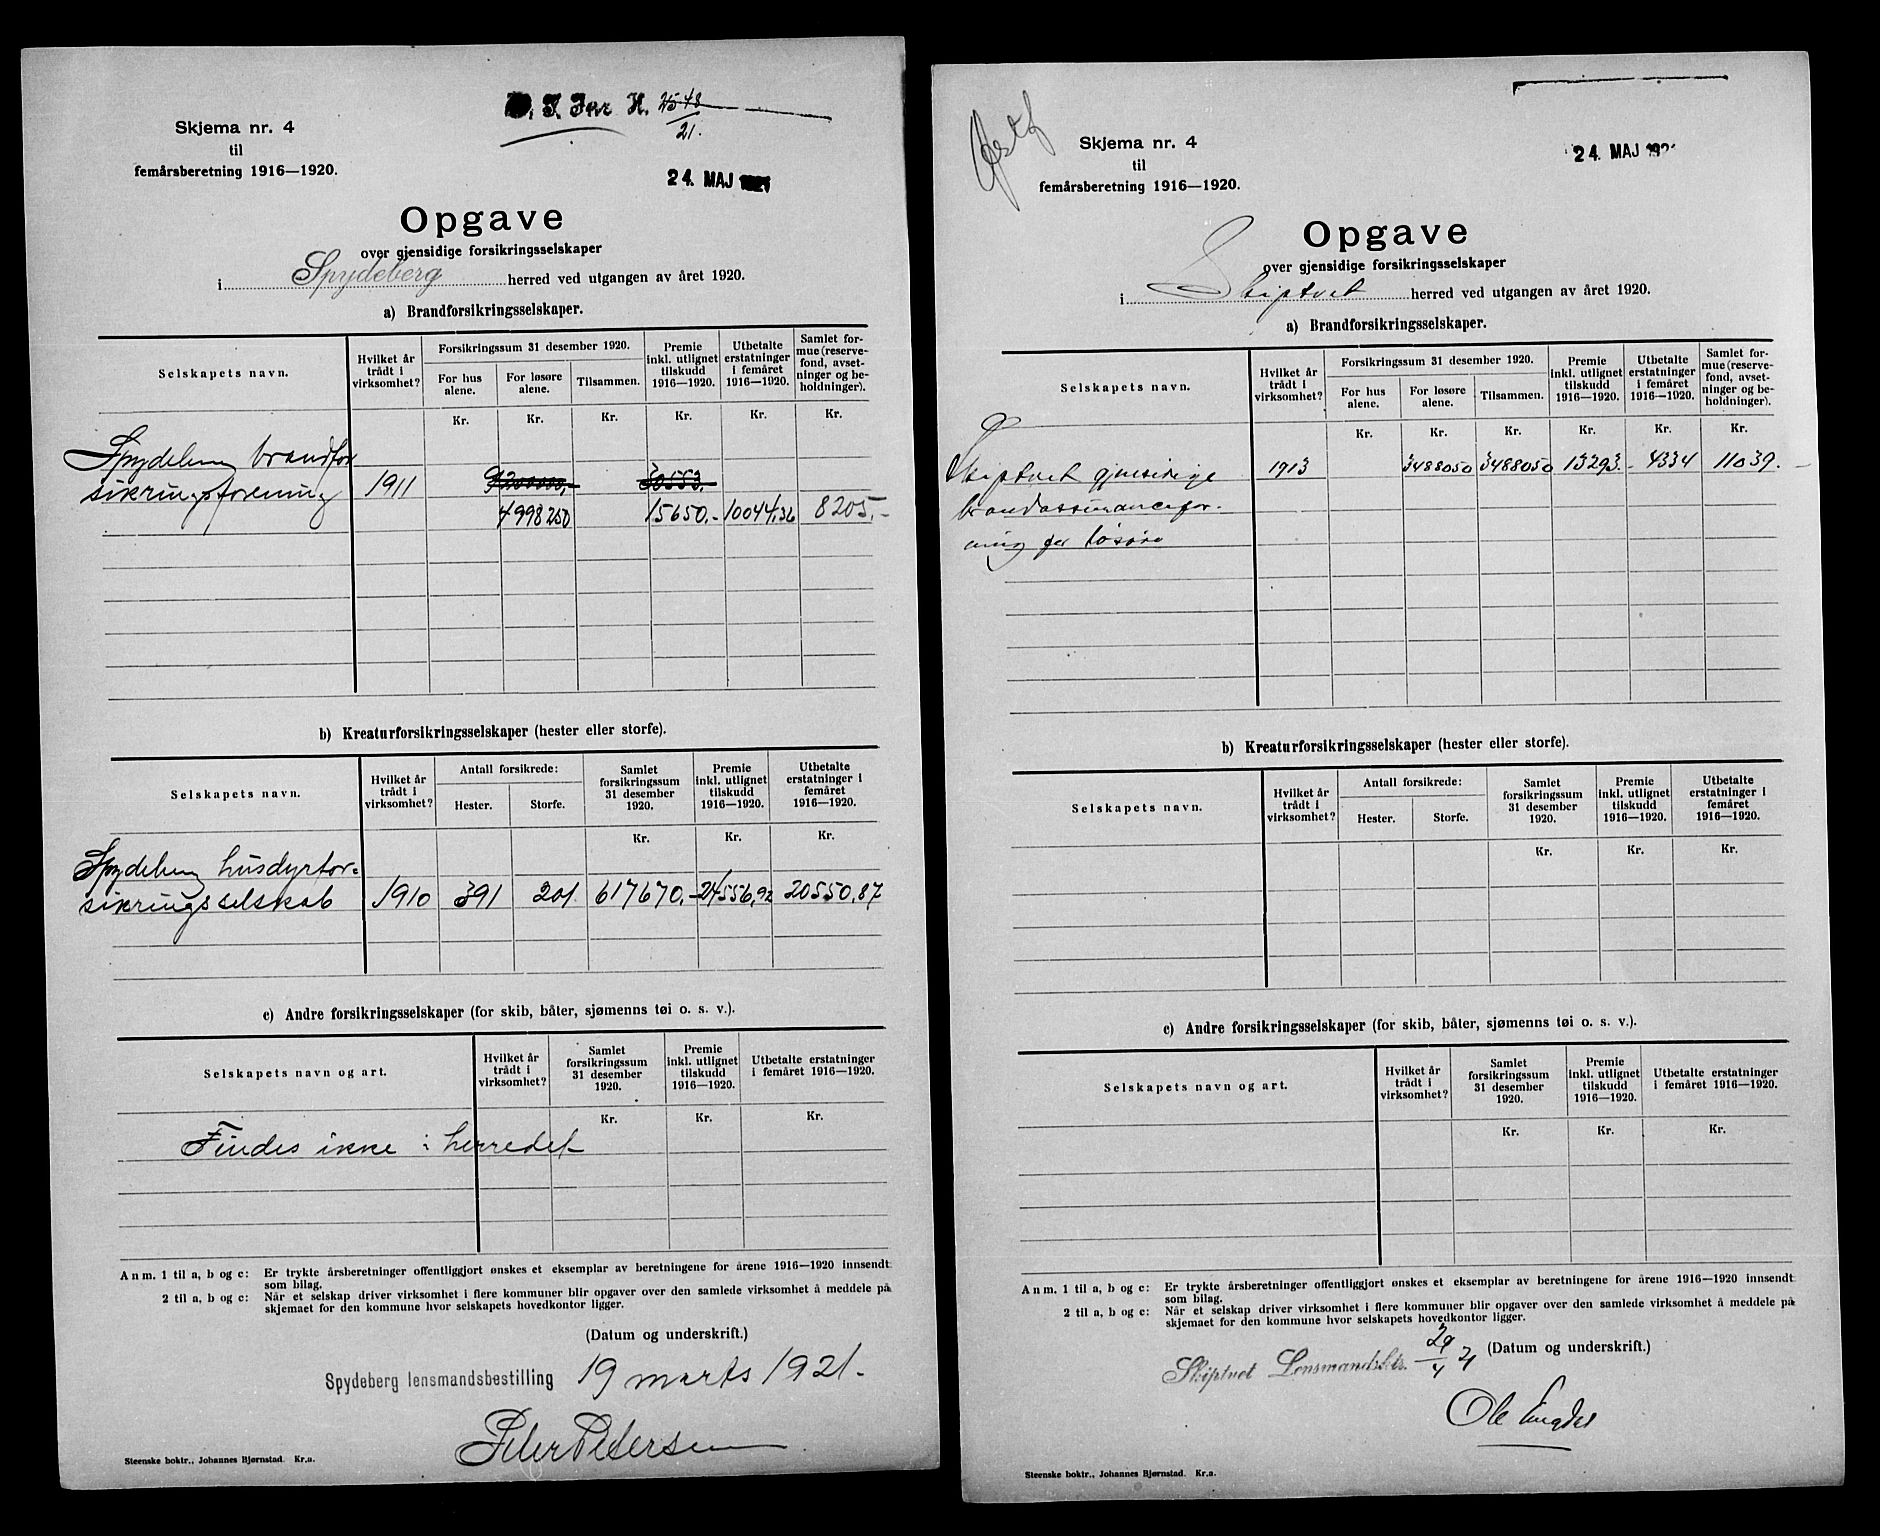 J. For H. 2548
21.
Skjema nr. 4
til
femårsberetning 1916—1920.
24. MAJ 1921
Opgave
over gjensidige forsikringsselskaper
i Spydeberg herred ved utgangen av året 1920.
a) Brandforsikringsselskaper.
Selskapets navn.
Hvilket år
trådt i
virksomhet?
Forsikringssum 31 desember 1920.
For hus
alene.
For løsøre
alene.
Tilsammen.
Premie
inkl. utlignet
tilskudd
1916—1920.
Utbetalte
erstatninger
i femåret
1916—1920.
Samlet for-
mue (reserve-
fond, avset-
ninger og be-
holdninger).
Kr. Kr. Kr. Kr. Kr. Kr.
Spydeberg brandfor
sikringsforening 1911 9200000,- 30553.-
4998250 15650.- 10044,36 8205,-
b) Kreaturforsikringsselskaper (hester eller storfe).
Selskapets navn.
Hvilket år
trådt i
virksomhet?
Antall forsikrede:
Hester.
Storfe.
Samlet
forsikringssum
31 desember
1920.
Premie
inkl. utlignet
tilskudd
1916—1920.
Utbetalte
erstatninger i
femåret
1916—1920.
Kr. Kr. Kr.
Spydeberg husdyrfor=
sikringsselskab 1910 391 201. 617670,- 24556,92 20550,87
c) Andre forsikringsselskaper (for skib, båter, sjømenns tøi o. s. v.).
Selskapets navn og art.
Hvilket år
trådt i
virksomhet?
Samlet
forsikringssum
31 desember
1920.
Premie
inkl. utlignet
tilskudd
1916—1920.
Utbetalte erstatninger
i femåret 1916—1920.
Kr. Kr. Kr.
Findes ikke i herredet
Anm. 1 til a, b og c: Er trykte årsberetninger offentliggjort ønskes et eksemplar av beretningene for årene 1916—1920 innsendt
som bilag.
2 til a, b og c: Når et selskap driver virksomhet i flere kommuner blir opgaver over den samlede virksomhet å meddele på
skjemaet for den kommune hvor selskapets hovedkontor ligger.
(Datum og underskrift.)
Spydeberg lensmandsbestilling 19 marts 1921.
Peter Pedersen
Steenske boktr., Johannes Bjørnstad. Kr.a.
Østf
Skjema nr. 4
til
femårsberetning 1916—1920.
24. MAJ 1921
Opgave
over gjensidige forsikringsselskaper
i Skiptvet herred ved utgangen av året 1920.
a) Brandforsikringsselskaper.
Selskapets navn.
Hvilket år
trådt i
virksomhet?
Forsikringssum 31 desember 1920.
For hus
alene.
For løsøre
alene.
Tilsammen.
Premie
inkl. utlignet
tilskudd
1916—1920.
Utbetalte
erstatninger
i femåret
1916—1920.
Samlet for-
mue (reserve-
fond, avset-
ninger og be-
holdninger).
Kr. Kr. Kr. Kr. Kr. Kr.
Skiptvet gjensidige 1913 3488050 3488050 13293.- 4334 11039.-
brandassuranceför-
ning for løsøre
b) Kreaturforsikringsselskaper (hester eller storfe).
Selskapets navn.
Hvilket år
trådt i
virksomhet?
Antall forsikrede:
Hester.
Storfe.
Samlet
forsikringssum
31 desember
1920.
Premie
inkl. utlignet
tilskudd
1916—1920.
Utbetalte
erstatninger i
femåret
1916—1920.
Kr. Kr. Kr.
c) Andre forsikringsselskaper (for skib, båter, sjømenns tøi o. s. v.).
Selskapets navn og art.
Hvilket år
trådt i
virksomhet?
Samlet
forsikringssum
31 desember
1920.
Premie
inkl. utlignet
tilskudd
1916—1920.
Utbetalte erstatninger
i femåret 1916—1920.
Kr. Kr. Kr.
Anm. 1 til a, b og c: Er trykte årsberetninger offentliggjort ønskes et eksemplar av beretningene for årene 1916—1920 innsendt
som bilag.
2 til a, b og c: Når et selskap driver virksomhet i flere kommuner blir opgaver over den samlede virksomhet å meddele på
skjemaet for den kommune hvor selskapets hovedkontor ligger.
(Datum og underskrift.)
Skiptvet Lensmandsktr. 29/4 21
Ole
Steenske boktr., Johannes Bjørnstad. Kr.a.